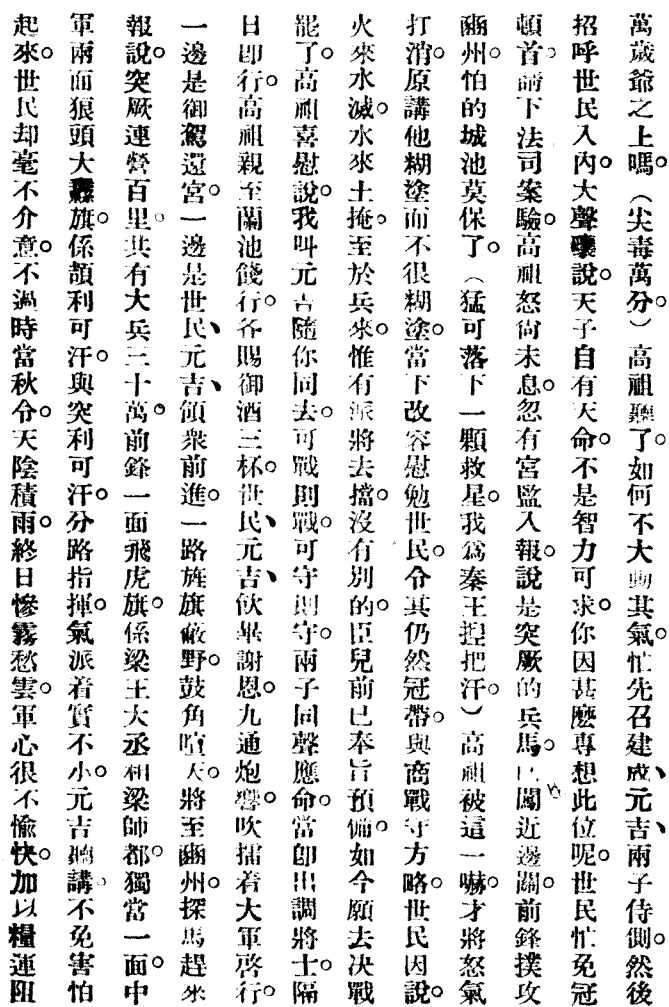 萬歲爺之上嗎（尖毒萬分）高祖聽了。如何不大動其氣。忙先召建成、元吉、兩子侍側。然後
招呼世民入內。大聲嚷說。天子自有天命。不是智力可求。你因甚麼專想此位呢。世民忙免冠
頓首。請下法司案驗。高祖怒尙未息。忽有宮監入報。說是突厥的兵馬。已闖近邊關。前鋒撲攻
豳州。怕的城池莫保了。（猛可落下一顆救星。我爲秦王揑把汗。）高祖被這一嚇。才將怒氣
打消。原講他糊塗而不很糊塗。當下改容慰勉世民。令其仍然冠帶。與商戰守方略。世民因說。
火來水滅。水來土掩。至於兵來。惟有派將去擋。沒有別的。臣兒前已奉旨預備。如今願去決戰
罷了。高祖喜慰說。我叫元吉隨你同去。可戰則戰。可守則守。兩子同聲應命。當即出調將士。隔
日即行。高祖親至蘭池餞行。各賜御酒三杯。世民、元吉、飮畢謝恩。九通炮響。吹擂着大軍啓行。
一邊是御駕還宮。一邊是世民、元吉、領衆前進。一路旌旗蔽野。鼓角喧天。將至豳州。探馬趕來
報說。突厥連營百里。共有大兵三十萬。前鋒一面飛虎旗。係梁王大丞相梁師都。獨當一面。中
軍兩面狼頭大纛旗。係頡利可汗。與突利可汗。分路指揮。氣派着實不小。元吉聽講。不免害怕
起來。世民却毫不介意。不過時當秋令。天陰積雨。終日慘霧愁雲。軍心很不愉快。加以糧運阻